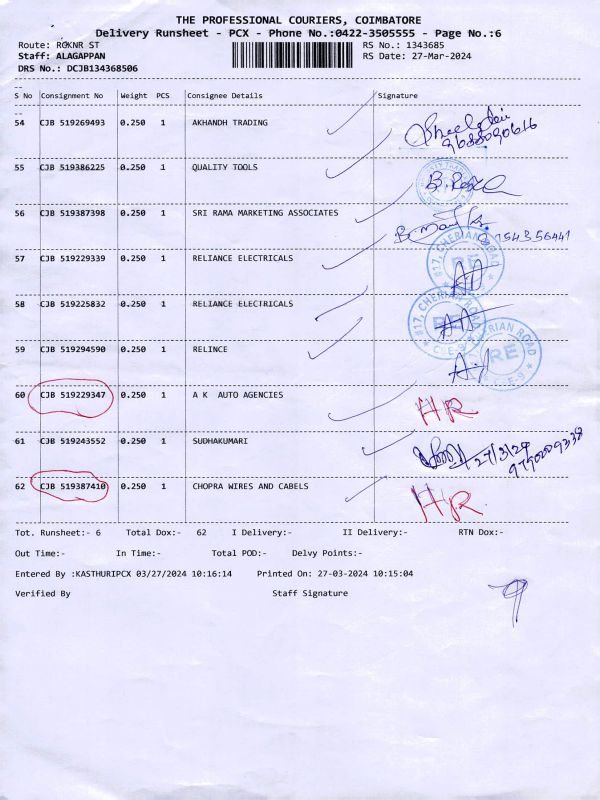 THE PROFESSIONAL COURIERS, COIMBATORE
Delivery Runsheet - PCX - Phone No.:0422-3505555 - Page No.:6
Route: RGKNR ST RS No.: 1343685
Staff: ALAGAPPAN RS Date: 27-Mar-2024
DRS No.: DCJB134368506
S No Consignment No Weight PCS Consignee Details Signature
54 CJB 519269493 0.250 1 AKHANDH TRADING
9688090616
55 CJB 519386225 0.250 1 QUALITY TOOLS
56 CJB 519387398 0.250 1 SRI RAMA MARKETING ASSOCIATES
57 CJB 519229339 0.250 1 RELIANCE ELECTRICALS
817, CHERIAN ROAD RE
58 CJB 519225832 0.250 1 RELIANCE ELECTRICALS
817, CHERIAN ROAD RE CBE-9
59 CJB 519294590 0.250 1 RELINCE
RIAN ROAD RE CBE-9
60 CJB 519229347 0.250 1 A K AUTO AGENCIES HR
61 CJB 519243552 0.250 1 SUDHAKUMARI 27/3/24
9790209338
62 CJB 519387410 0.250 1 CHOPRA WIRES AND CABELS HR
Tot. Runsheet:- 6 Total Dox:- 62 I Delivery:- II Delivery:- RTN Dox:-
Out Time:- In Time:- Total POD:- Delvy Points:-
Entered By :KASTHURIPCX 03/27/2024 10:16:14 Printed On: 27-03-2024 10:15:04
Verified By Staff Signature